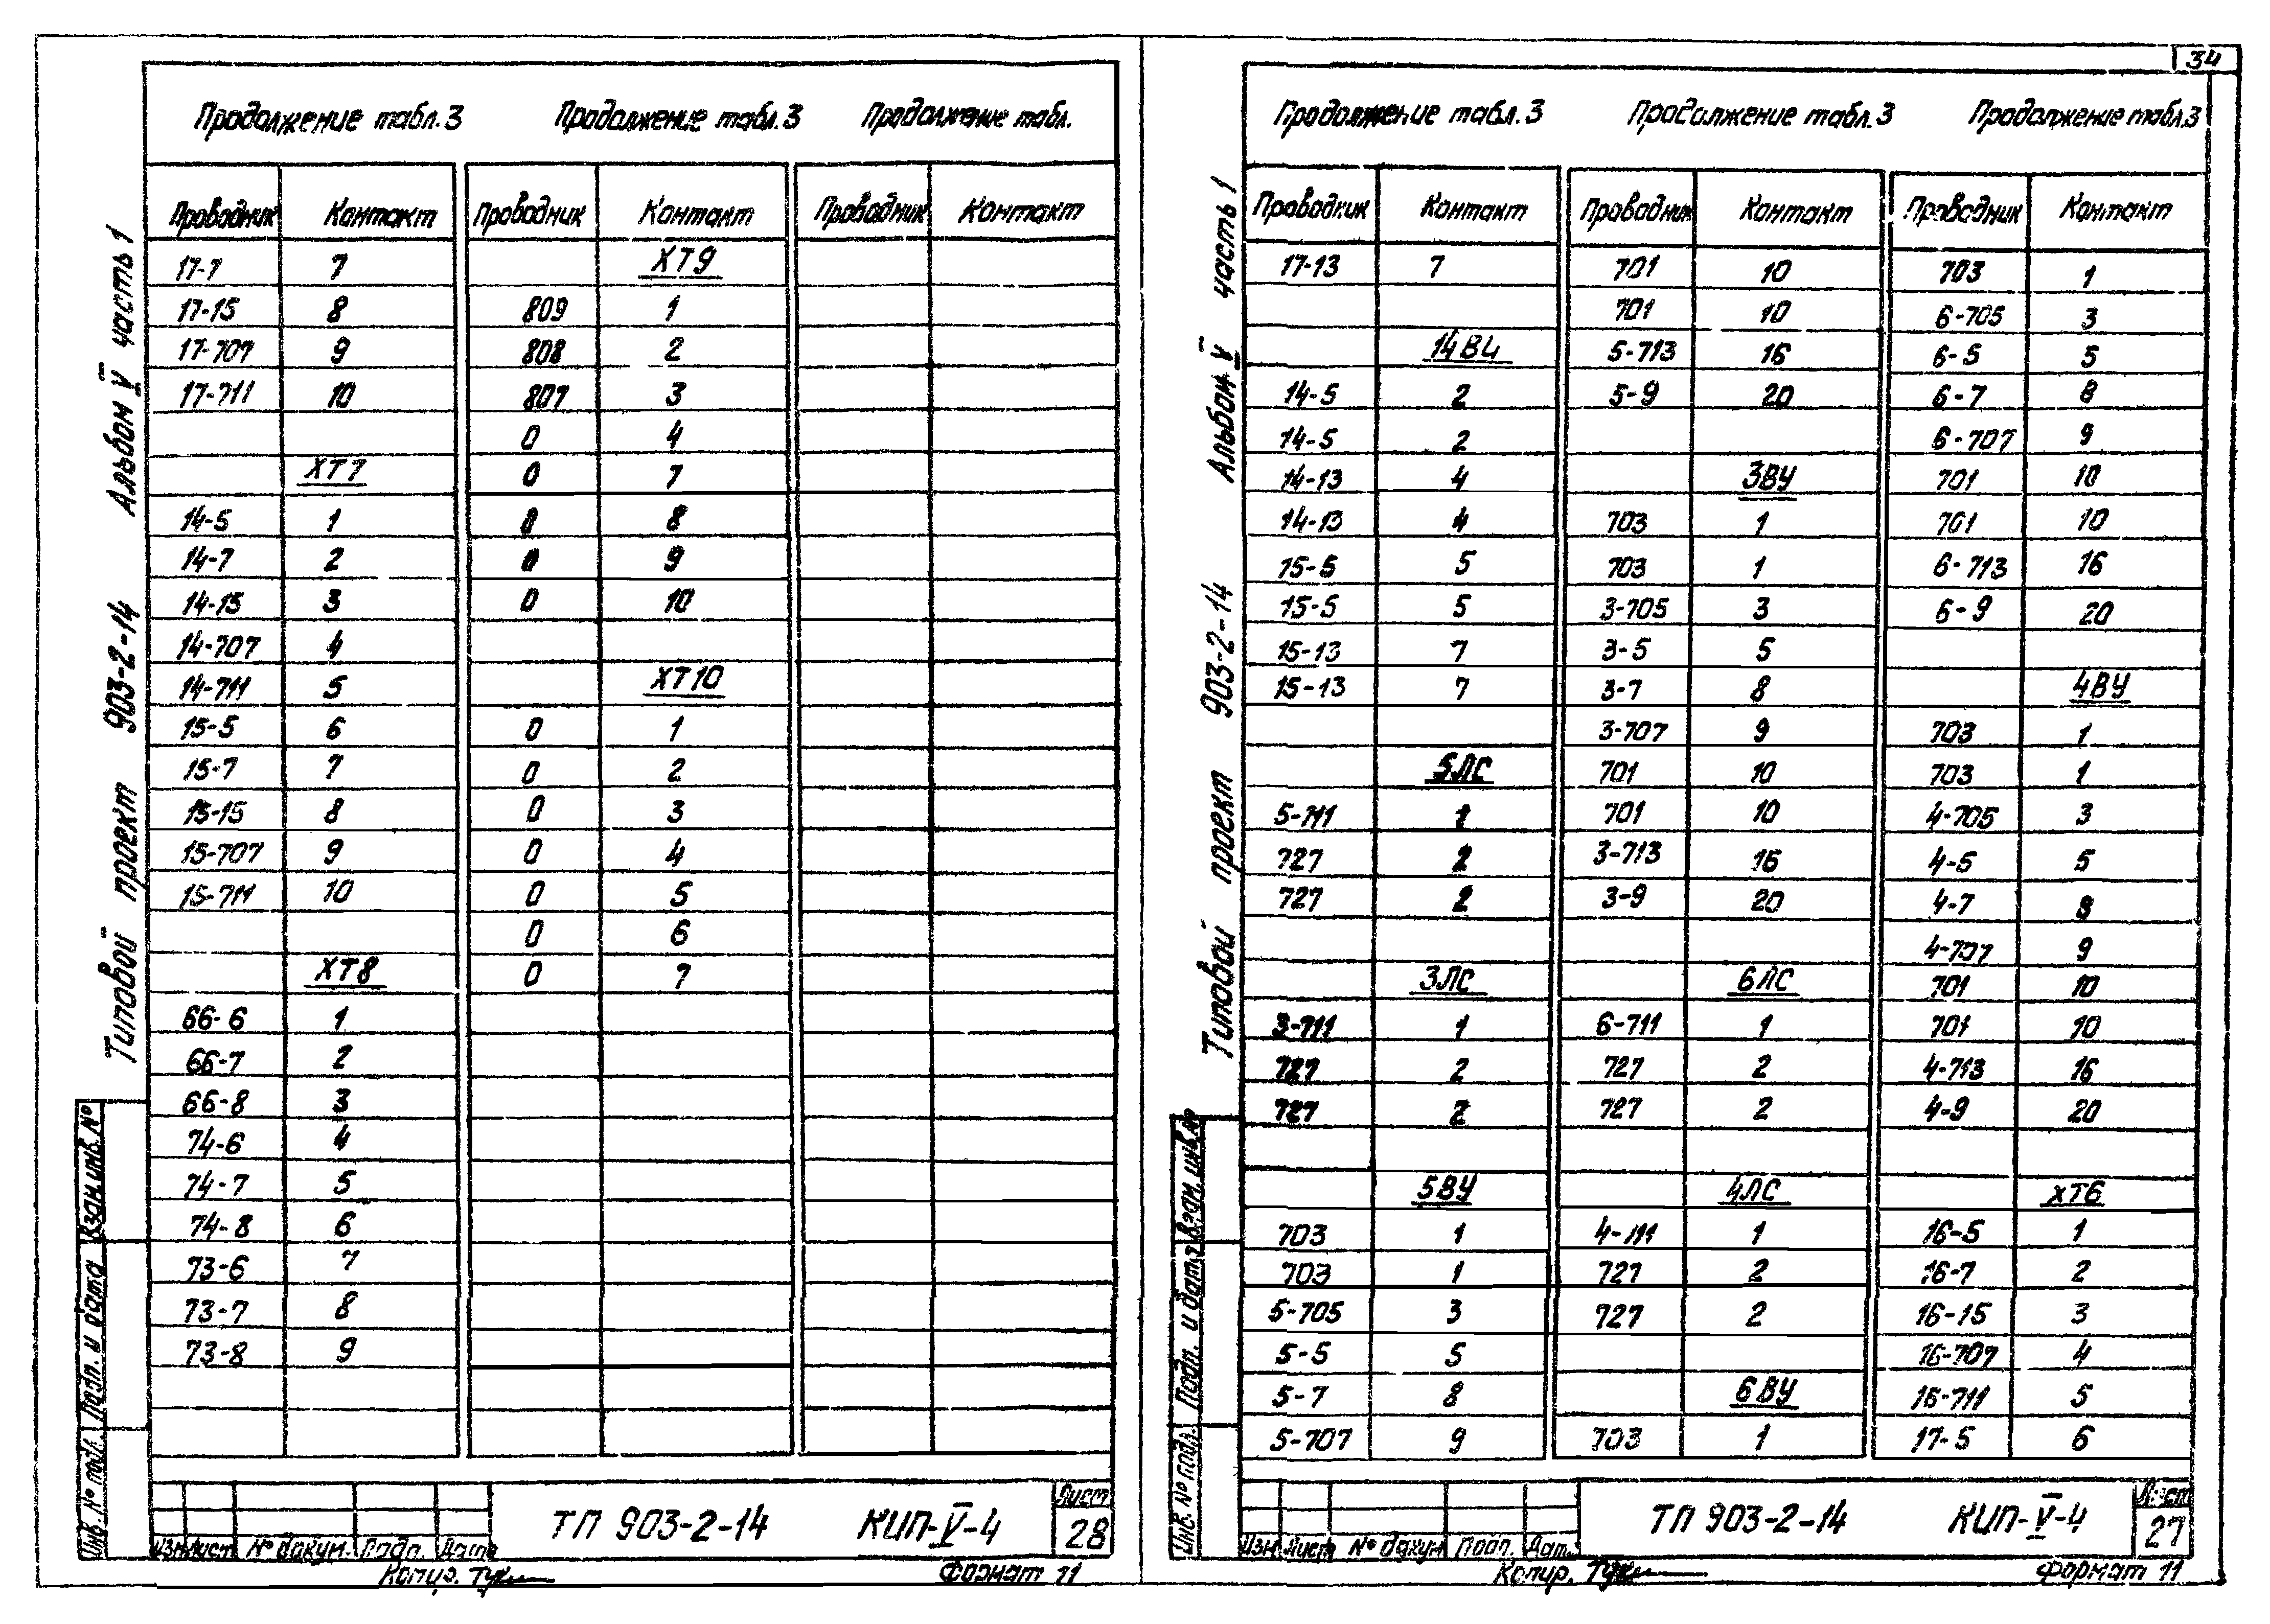 34
Продолжение табл.3 Продолжение табл.3 Продолжение табл.
Проводник Контакт Проводник Контакт Проводник Контакт
17-7 7 ХТ9
17-15 8 809 1
17-707 9 808 2
17-711 10 807 3
0 4
ХТ7 0 7
14-5 1 0 8
14-7 2 0 9
14-15 3 0 10
14-707 4
14-711 5 ХТ10
15-5 6 0 1
15-7 7 0 2
15-15 8 0 3
15-707 9 0 4
15-711 10 0 5
0 6
ХТ8 0 7
66-6 1
66-7 2
66-8 3
74-6 4
74-7 5
74-8 6
73-6 7
73-7 8
73-8 9
Типовой проект 903-2-14 Альбом V часть 1
Инв. № подл. Подп. и дата Взам.инв.№
Изм. Лист № докум. Подп. Дата
ТП 903-2-14 КИП-V-4
Лист
28
Копир. Формат 11
Продолжение табл.3 Продолжение табл.3 Продолжение табл.3
Проводник Контакт Проводник Контакт Проводник Контакт
17-13 7 701 10 703 1
701 10 6-705 3
14ВЦ 5-713 16 6-5 5
14-5 2 5-9 20 6-7 8
14-5 2 6-707 9
14-13 4 3ВУ 701 10
14-13 4 703 1 701 10
15-5 5 703 1 6-713 16
15-5 5 3-705 3 6-9 20
15-13 7 3-5 5
15-13 7 3-7 8 4ВУ
3-707 9 703 1
5ЛС 701 10 703 1
5-711 1 701 10 4-705 3
727 2 3-713 16 4-5 5
727 2 3-9 20 4-7 8
4-707 9
3ЛС 6ЛС 701 10
3-711 1 6-711 1 701 10
727 2 727 2 4-713 16
727 2 727 2 4-9 20
5ВУ 4ЛС ХТ6
703 1 4-711 1 16-5 1
703 1 727 2 16-7 2
5-705 3 727 2 16-15 3
5-5 5 16-707 4
5-7 8 6ВУ 16-711 5
5-707 9 703 1 17-5 6
Типовой проект 903-2-14 Альбом V часть 1
Инв. № подл. Подп. и дата Взам.инв.№
Изм. Лист № докум. Подп. Дат.
ТП 903-2-14 КИП-V-4
Лист
27
Копир. Формат 11